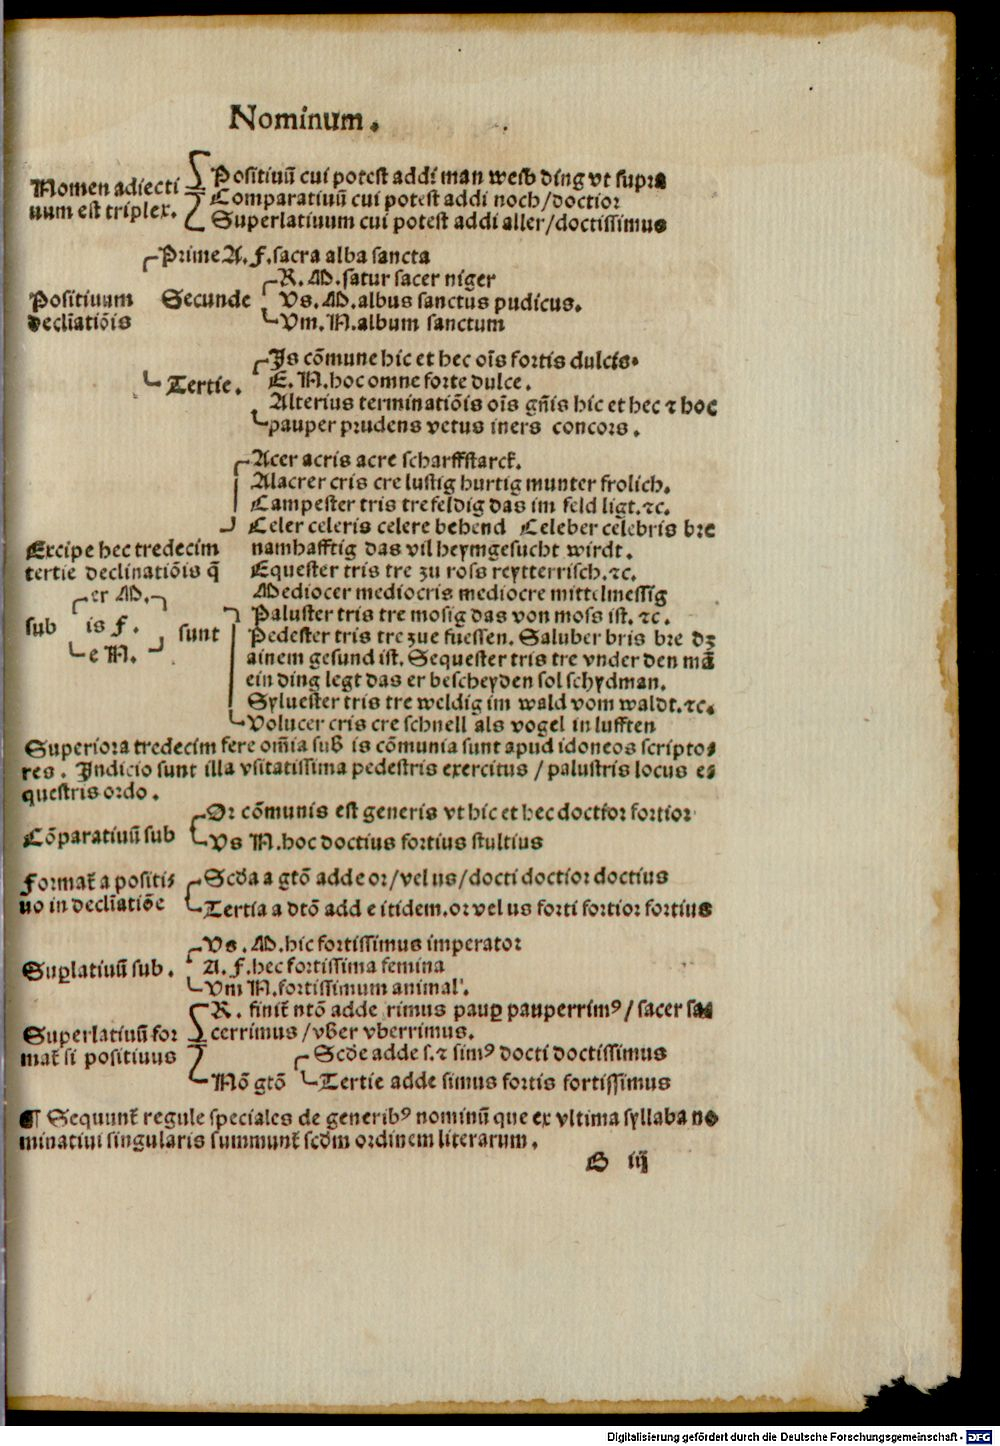 Nominum.
Nomen adiecti
uum est triplex.
Positiuū cui potest addi man weib ding vt supra
Comparatiuū cui potest addi noch/doctior
Superlatiuum cui potest addi aller/doctissimus
Positiuum
decliatiōis
Prime A. F. sacra alba sancta
Secunde
R. M. satur sacer niger
Vs. M. albus sanctus pudicus.
Vm. N. album sanctum
Tertie.
Is cōmune hic et hec oīs fortis dulcis.
E. N. hoc omne forte dulce.
Alterius terminatiōis oīs gñis hic et hec ⁊ hoc
pauper prudens vetus iners concors.
Excipe hec tredecim
tertie declinatiōis q̄
sub
er M.
is F.
e N.
sunt
Acer acris acre scharffstarck.
Alacrer cris cre lustig hurtig munter frolich.
Campester tris tre feldig das im feld ligt. ⁊c.
Celer celeris celere behend Celeber celebris bre
namhafftig das vil heymgesucht wirdt.
Equester tris tre zu ross reytterrisch. ⁊c.
Mediocer mediocris mediocre mittelmessig
Paluster tris tre mosig das von moss ist. ⁊c.
Pedester tris tre zue fuessen. Saluber bris bre dz
ainem gesund ist. Sequester tris tre vnder den mā
ein ding legt das er bescheyden sol schydman.
Syluester tris tre weldig im wald vom waldt. ⁊c.
Volucer cris cre schnell als vogel in lufften
Superiora tredecim fere om̄ia sub is cōmunia sunt apud idoneos scripto⸗
res. Indicio sunt illa vsitatissima pedestris exercitus/palustris locus e⸗
questris ordo.
Cōparatiuū sub
Or cōmunis est generis vt hic et hec doctior fortior
Vs N. hoc doctius fortius stultius
Format̄ a positi⸗
uo in decliatiōe
Scd̄a a gtō adde or/vel us/docti doctior doctius
Tertia a dtō adde itidem. or vel us forti fortior fortius
Suꝑlatiuū sub.
Vs. M. hic fortissimus imperator
A. F. hec fortissima femina
Vm N. fortissimum animal.
Superlatiuū for
mat̄ si positiuus
R. finit̄ ntō adde rimus pauꝑ pauperrimꝰ/sacer sa
cerrimus/vber vberrimus.
Nō gtō
Scd̄e adde s. ⁊ simꝰ docti doctissimus
Tertie adde simus fortis fortissimus
¶ Sequunt̄ regule speciales de generibꝰ nominū que ex vltima syllaba no
minatiui singularis summunt̄ scd̄m ordinem literarum.
B iij
Digitalisierung gefördert durch die Deutsche Forschungsgemeinschaft - DFG